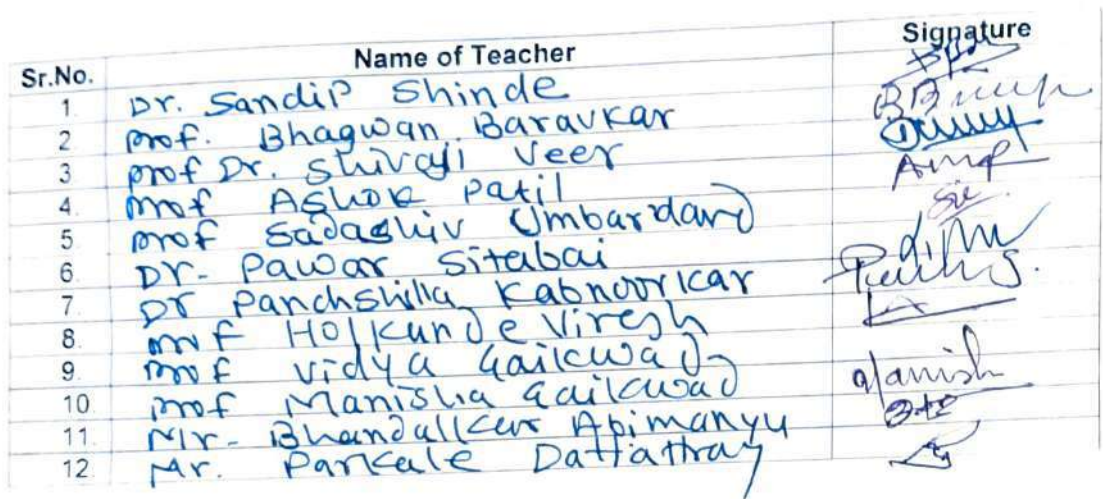 Sr.No. Name of Teacher Signature
1. Dr. Sandip Shinde
2 Prof. Bhagwan Baravkar
3 prof Dr. Shivaji Veer
4. Prof Ashok Patil
5 prof Sadashiv Umbardand
6. Dr. Pawar Sitabai
7. Dr Panchshilla Kabnoorkar
8. prof Holkunde Viresh
9. prof Vidya Gaikwad
10 prof Manisha Gaikwad Manish
11. Mr. Bhandalkar Abimanyu
12 Mr. Parkale Dattathray